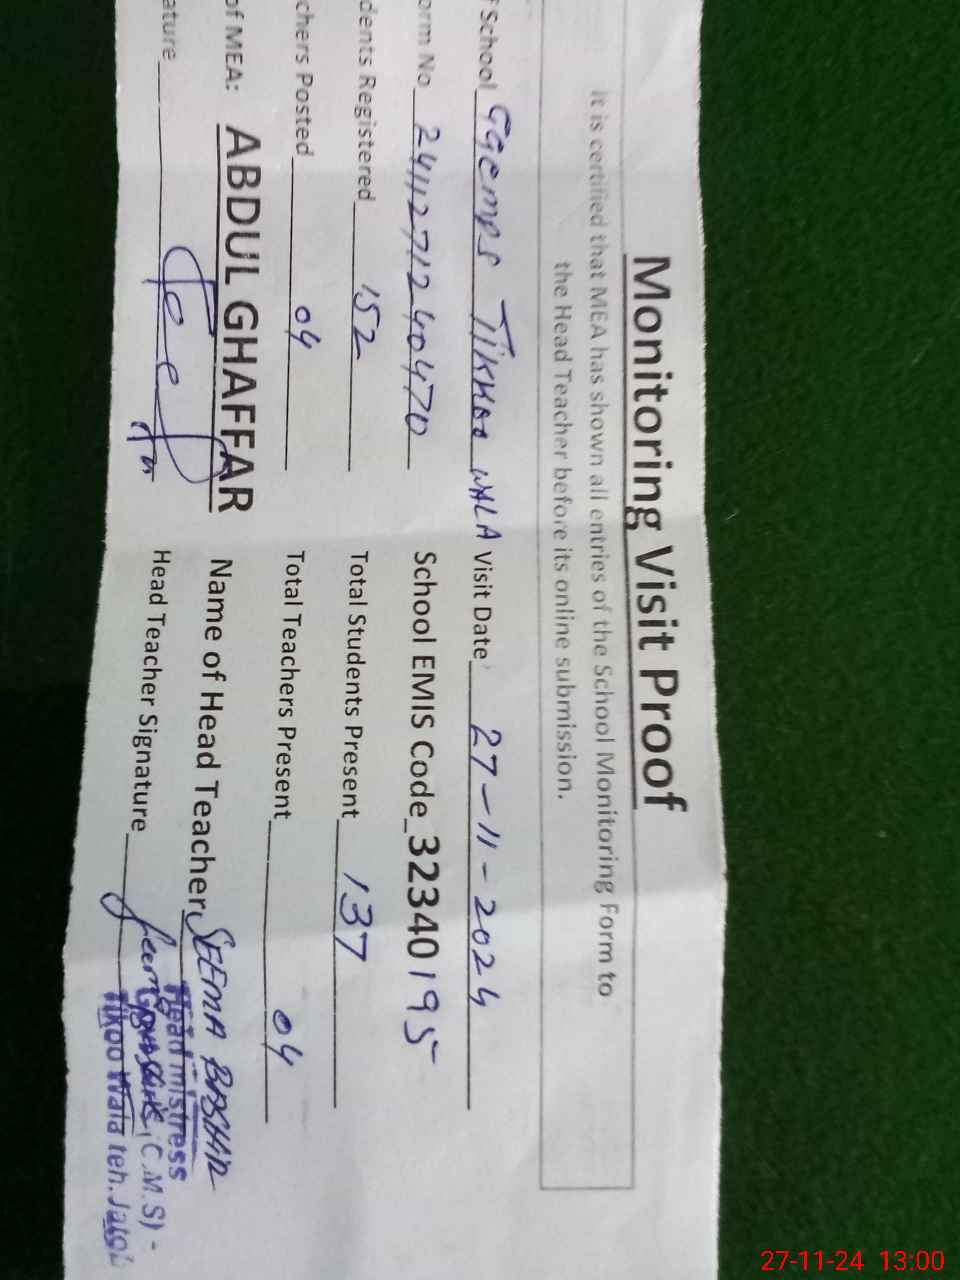 Monitoring Visit Proof
It is certified that MEA has shown all entries of the School Monitoring Form to
the Head Teacher before its online submission.
School GGCMPS TIKKOO WALA Visit Date 27-11-2024
orm No 241127124 04 70 School EMIS Code 32340195
dents Registered 152 Total Students Present 137
chers Posted 04 Total Teachers Present 04
of MEA: ABDUL GHAFFAR Name of Head Teacher SEEMA BASHIR
ature Head Teacher Signature
Head mistress
(C.M.S) -
Tikoo Wala teh. Jatoi
27-11-24 13:00